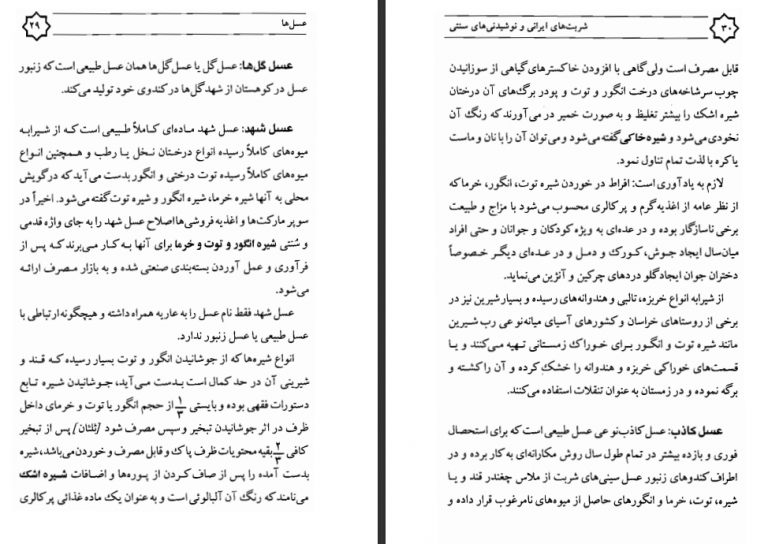 عسل‌ها
۲۹
عسل گل‌ها: عسل گل یا عسل گل‌ها همان عسل طبیعی است که زنبور
عسل در کوهستان از شهد گل‌ها در کندوی خود تولید می‌کند.
عسل شهد: عسل شهد ماده‌ای کاملاً طبیعی است که از شیرابه
میوه‌های کاملاً رسیده انواع درختان نخل یا رطب و همچنین انواع
میوه‌های کاملاً رسیده توت درختی و انگور بدست می‌آید که در گویش
محلی به آنها شیره خرما، شیره انگور و شیره توت گفته می‌شود. اخیراً در
سوپر مارکت‌ها و اغذیه فروشی‌ها اصلاح عسل شهد را به جای واژه قدمی
و سُنتی شیره انگور و توت و خرما برای آنها به کار می‌برند که پس از
فرآوری و عمل آوردن بسته‌بندی صنعتی شده و به بازار مصرف ارائه
می‌شود.
عسل شهد فقط نام عسل را به عاریه همراه داشته و هیچگونه ارتباطی با
عسل طبیعی یا عسل زنبور ندارد.
انواع شیره‌ها که از جوشانیدن انگور و توت بسیار رسیده که قند و
شیرینی آن در حد کمال است بدست می‌آید، جوشانیدن شیره تابع
دستورات فقهی بوده و بایستی ۱/۳ از حجم انگور یا توت و خرمای داخل
ظرف در اثر جوشانیدن تبخیر و سپس مصرف شود (ثلثان) پس از تبخیر
کافی ۲/۳ بقیه محتویات ظرف پاک و قابل مصرف و خوردن می‌باشد، شیره
بدست آمده را پس از صاف کردن از پوره‌ها و اضافات شیره اشک
می‌نامند که رنگ آن آلبالوئی است و به عنوان یک ماده غذائی پر کالری
شربت‌های ایرانی و نوشیدنی‌های سنتی
۳۰
قابل مصرف است ولی گاهی با افزودن خاکسترهای گیاهی از سوزانیدن
چوب سرشاخه‌های درخت انگور و توت و پودر برگ‌های آن درختان
شیره اشک را بیشتر تغلیظ و به صورت خمیر در می‌آورند که رنگ آن
نخودی می‌شود و شیره خاکی گفته می‌شود و می‌توان آن را با نان و ماست
یا کره با لذت تمام تناول نمود.
لازم به یادآوری است: افراط در خوردن شیره توت، انگور، خرما که
از نظر عامه از اغذیه گرم و پرکالری محسوب می‌شود با مزاج و طبیعت
برخی ناسازگار بوده و در عده‌ای به ویژه کودکان و جوانان و حتی افراد
میان‌سال ایجاد جوش، کورک و دمل و در عده‌ای دیگر خصوصاً
دختران جوان ایجاد گلو دردهای چرکین و آنژین می‌نماید.
از شیرابه انواع خربزه، تالبی و هندوانه‌های رسیده و بسیار شیرین نیز در
برخی از روستاهای خراسان و کشورهای آسیای میانه نوعی رب شیرین
مانند شیره توت و انگور برای خوراک زمستانی تهیه می‌کنند و یا
قسمت‌های خوراکی خربزه و هندوانه را خشک کرده و آن را کشته و
برگه نموده و در زمستان به عنوان تنقلات استفاده می‌کنند.
عسل کاذب: عسل کاذب نوعی عسل طبیعی است که برای استحصال
فوری و بازده بیشتر در تمام طول سال روش مکارانه‌ای به کار برده و در
اطراف کندوهای زنبور عسل سینی‌های شربت از ملاس چغندر قند و یا
شیره، توت، خرما و انگورهای حاصل از میوه‌های نامرغوب قرار داده و